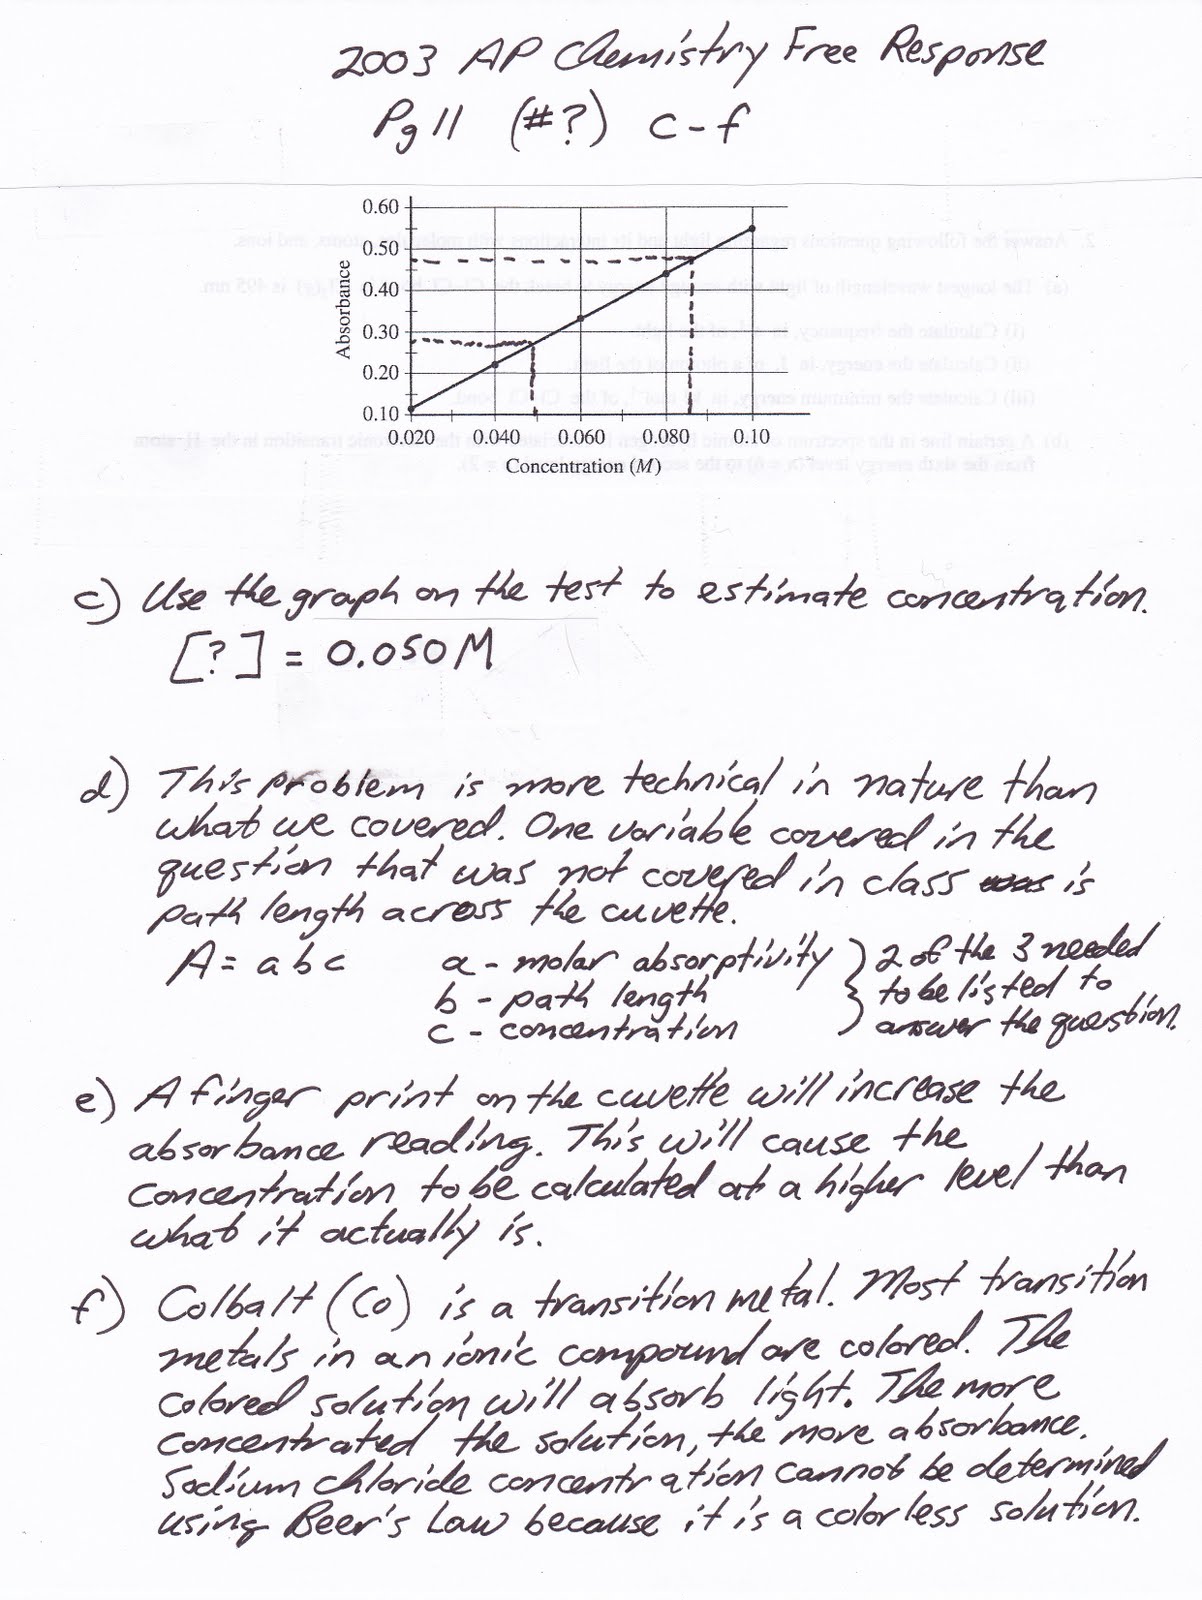 2003 AP Chemistry Free Response
Pg 11 (#?) c-f
0.60
0.50
0.40
0.30
0.20
0.10
Absorbance
0.020 0.040 0.060 0.080 0.10
Concentration (M)
c) Use the graph on the test to estimate concentration.
[?] = 0.050 M
d) This problem is more technical in nature than
what we covered. One variable covered in the
question that was not covered in class was is
path length across the cuvette.
A = abc a - molar absorptivity 2 of the 3 needed
b - path length to be listed to
c - concentration answer the question.
e) A finger print on the cuvette will increase the
absorbance reading. This will cause the
concentration to be calculated at a higher level than
what it actually is.
f) Colbalt (Co) is a transition metal. Most transition
metals in an ionic compound are colored. The
colored solution will absorb light. The more
concentrated the solution, the more absorbance.
Sodium chloride concentration cannot be determined
using Beer's Law because it is a colorless solution.